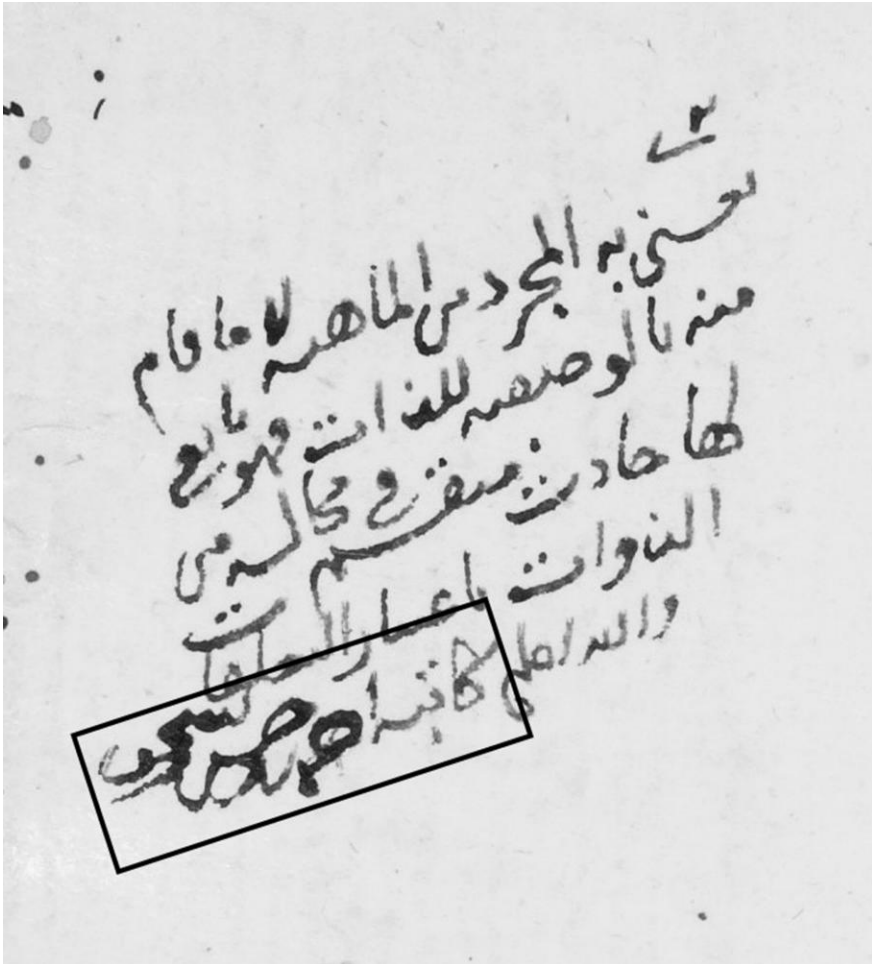 ٣
يعني به المجرد من الماهيه لا ما قام
منه بالوصفيه للذات فهو تابع
لها حادث منقسم في محاله من
الذوات باعتبار التعلقات
والله اعلم كاتبه احمد